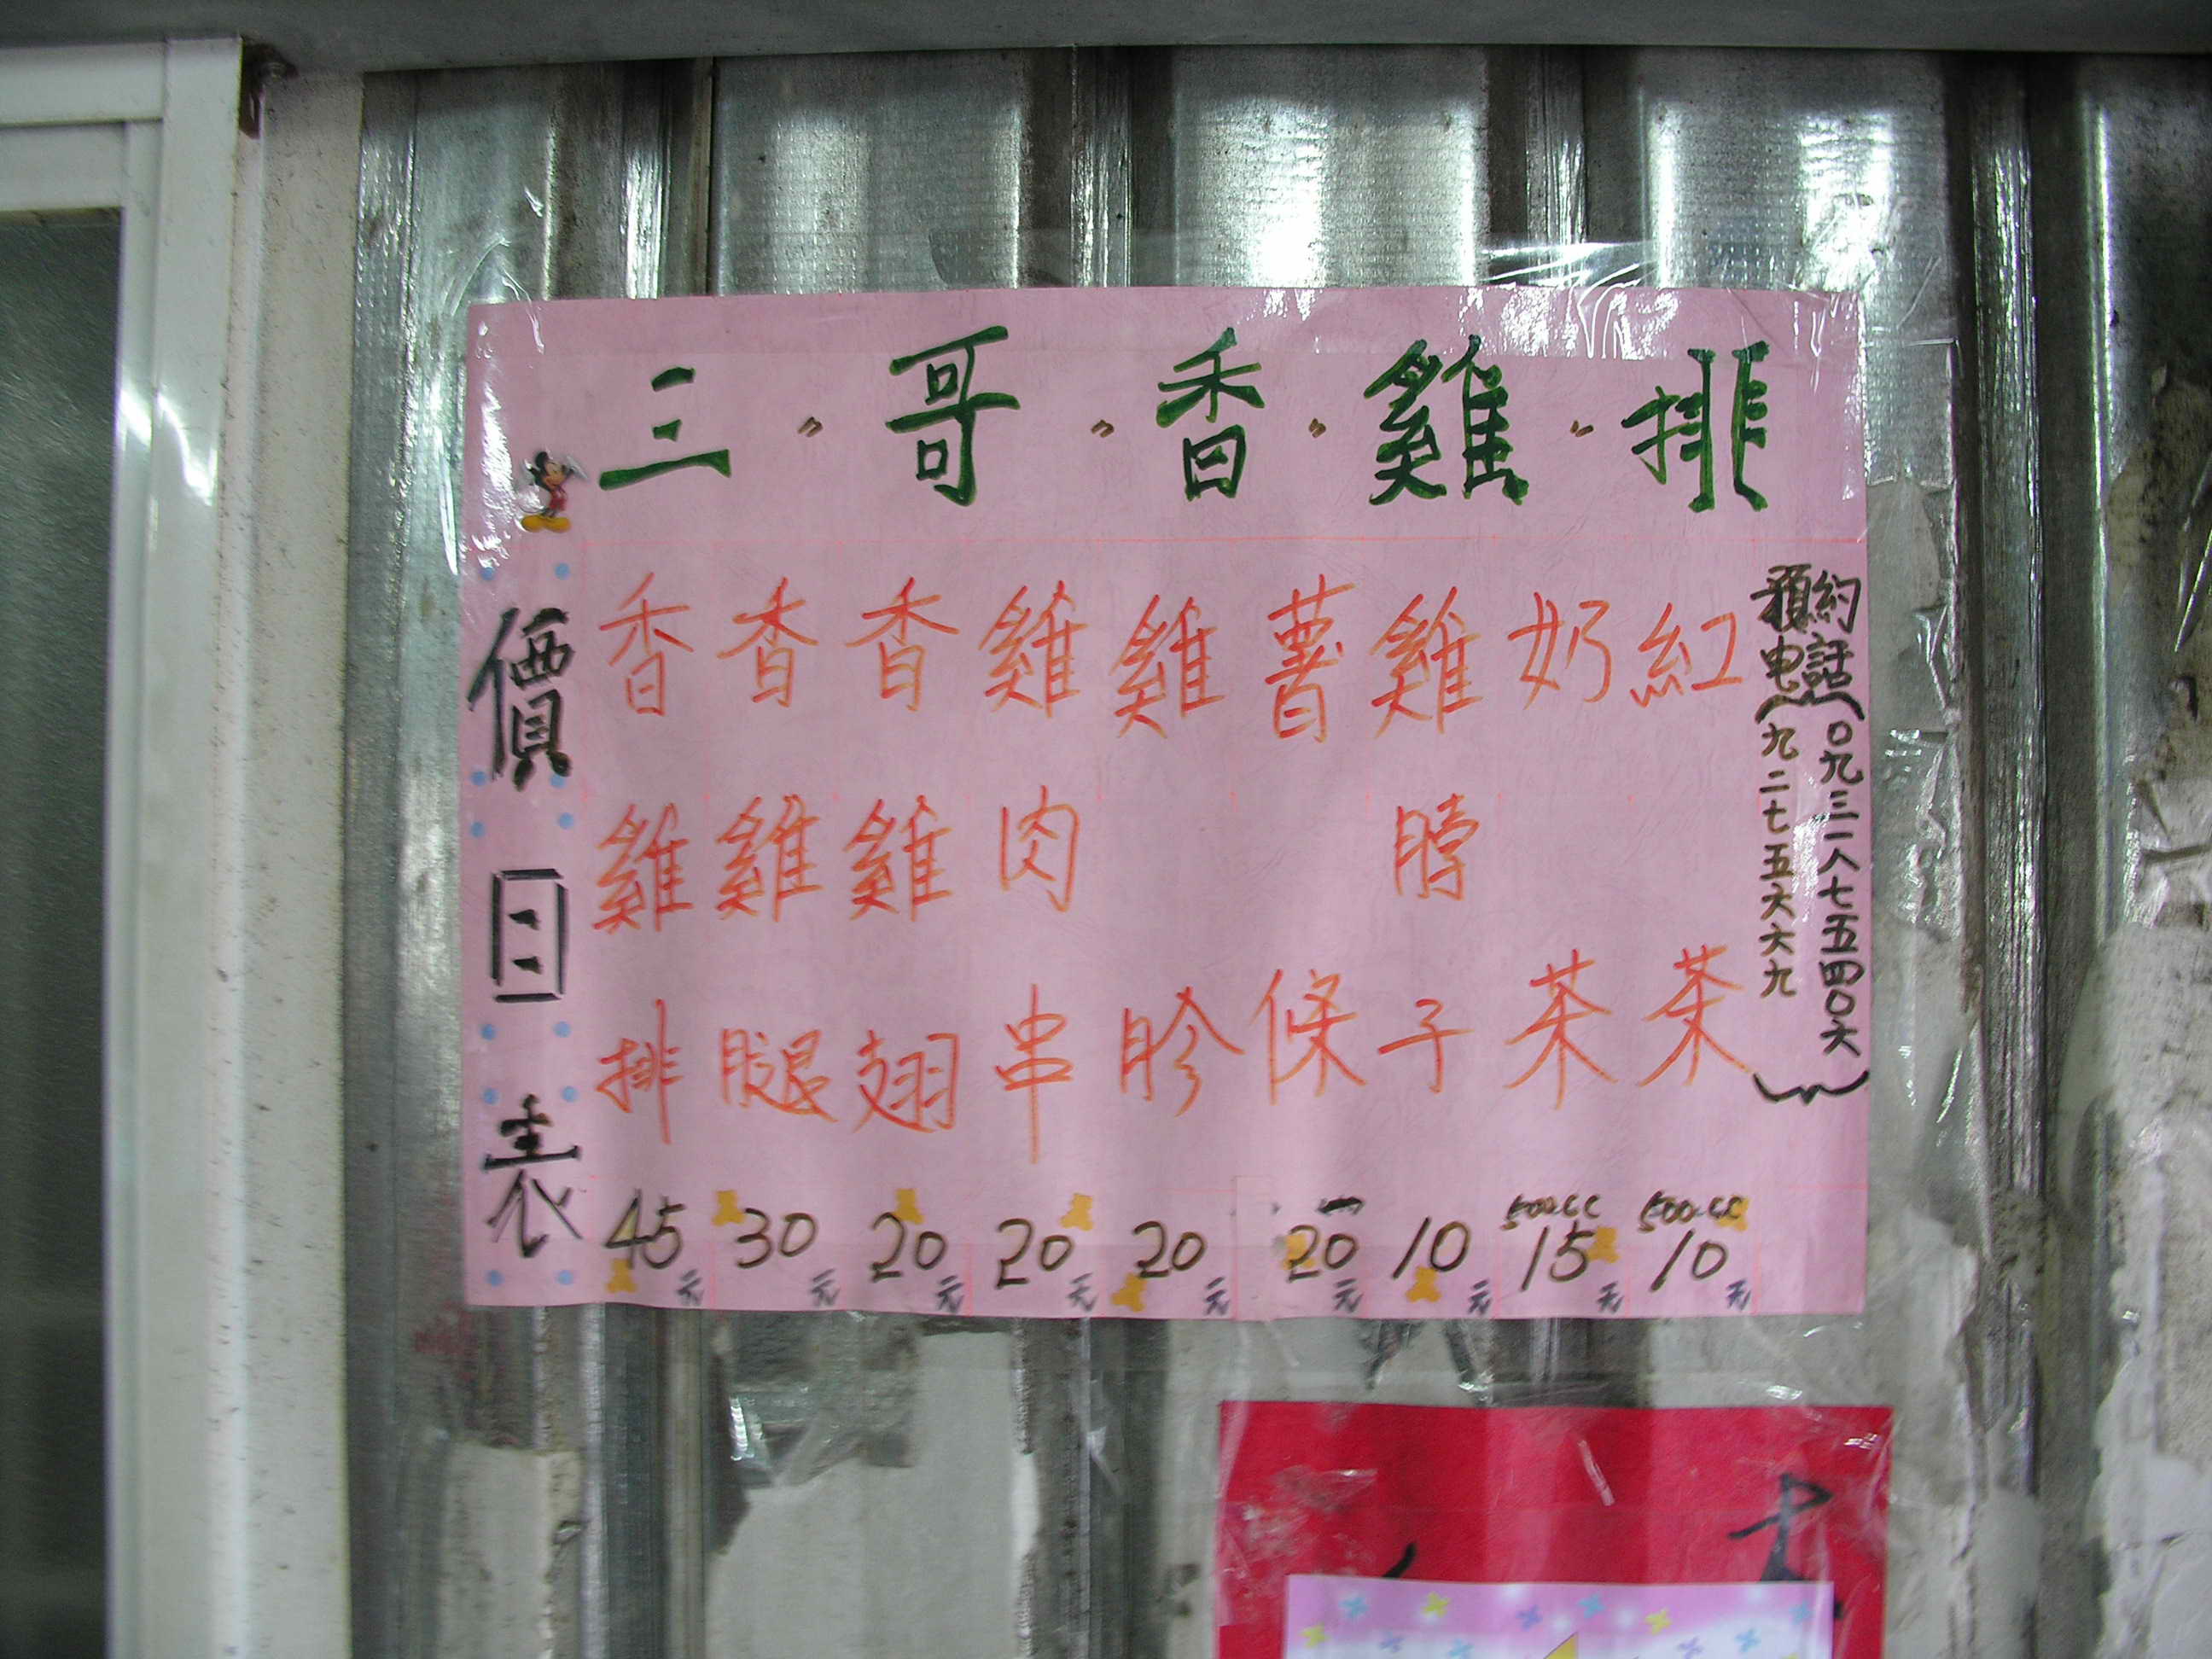 三哥香雞排
價目表
香雞排 45元
香雞腿 30元
香雞翅 20元
雞肉串 20元
雞肣 20元
薯條 20元
雞脖子 10元
奶茶 500cc 15元
紅茶 500cc 10元
預約电話
(０九三一八七五四０六
九二七五六六九)